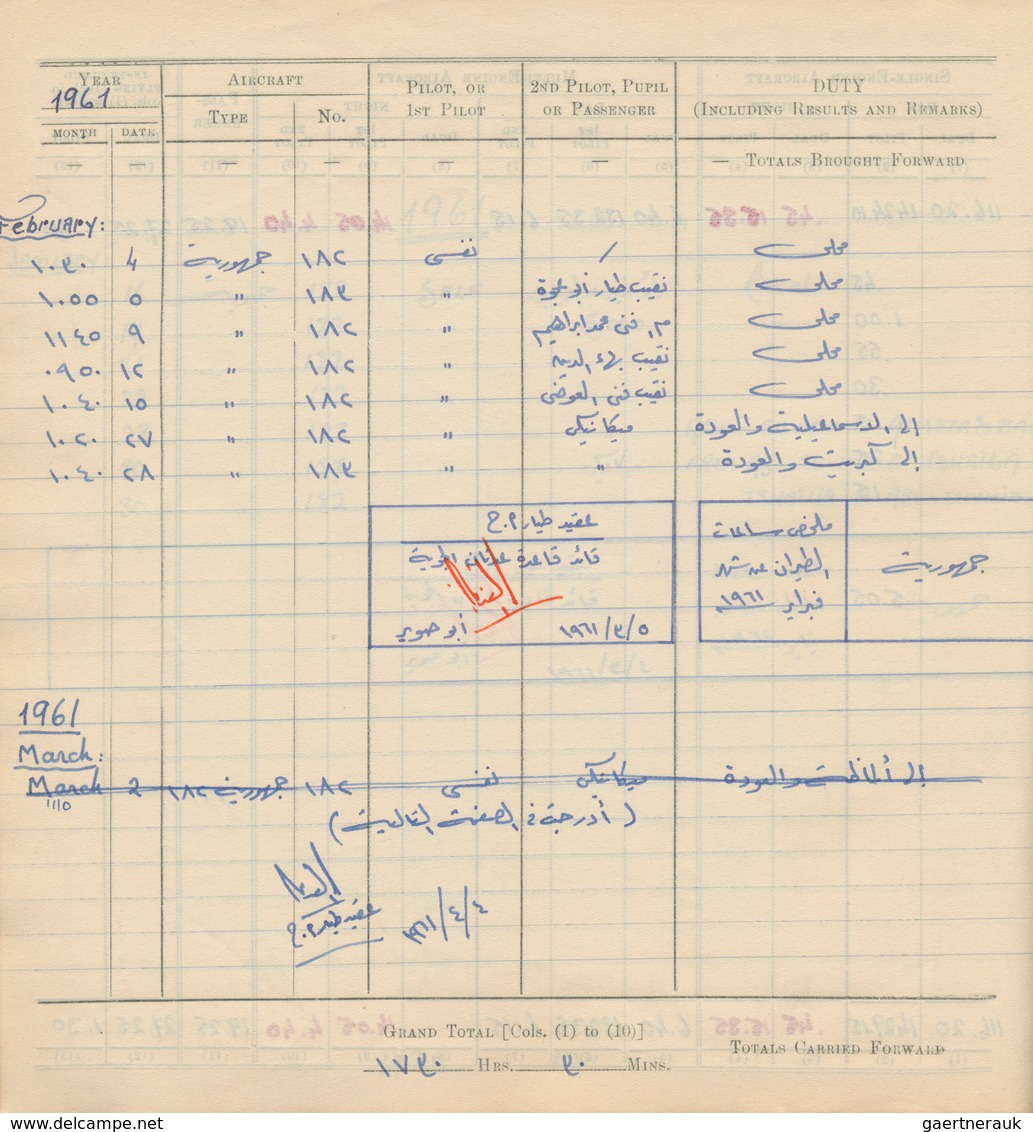 YEAR AIRCRAFT PILOT, OR 1ST PILOT 2ND PILOT, PUPIL OR PASSENGER DUTY (INCLUDING RESULTS AND REMARKS)
1961
MONTH DATE TYPE No.
— — — — — — TOTALS BROUGHT FORWARD
February:
١٠٣٠ ٤ جمهورية ١٨٢ نفسى / محلى
١٠٥٥ ٥ " ١٨٣ " نقيب طيار أبو عجوة محلى
١١٤٥ ٩ " ١٨٢ " م. فنى محمد ابراهيم محلى
٠٩٥٠ ١٢ " ١٨٢ " نقيب بهاء الدين محلى
١٠٤٠ ١٥ " ١٨٢ " نقيب فنى العوضى محلى
١٠٢٠ ٢٧ " ١٨٢ " ميكانيكى إلى الاسماعيلية والعودة
١٠٤٠ ٢٨ " ١٨٣ " " إلى كبريت والعودة
عقيد طيار م.ح
قائد قاعدة الجوية
أبو صوير ١٩٦١/٣/٥
ملخص ساعات
الطيران عن شهر
فبراير ١٩٦١
جمهورية
1961
March:
March 2 جمهورية ١٨٢ ١٨٢ نفسى ميكانيكى إلى ألماظة والعودة
1110
(أدرجت فى الصفحة التالية)
عقيد طيار م.ح
١٩٦١/٤/٤
GRAND TOTAL [COLS. (1) to (10)]
١٧٣٠ HRS. ٣٠ MINS.
TOTALS CARRIED FORWARD
delcampe.net
gaertnerauk